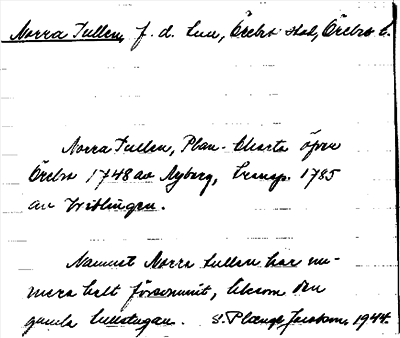 Norra Tullen, f. d. tull, Örebro stad, Örebro l.
Norra Tullen, Plan-Charta öfver
Örebro 1748 av Nyberg, transp. 1785
av Wiblingen.
Namnet Norra tullen har nu-
mera helt försvunnit, liksom den
gamla tullstugan. S. Plænge Jacobson 1944.